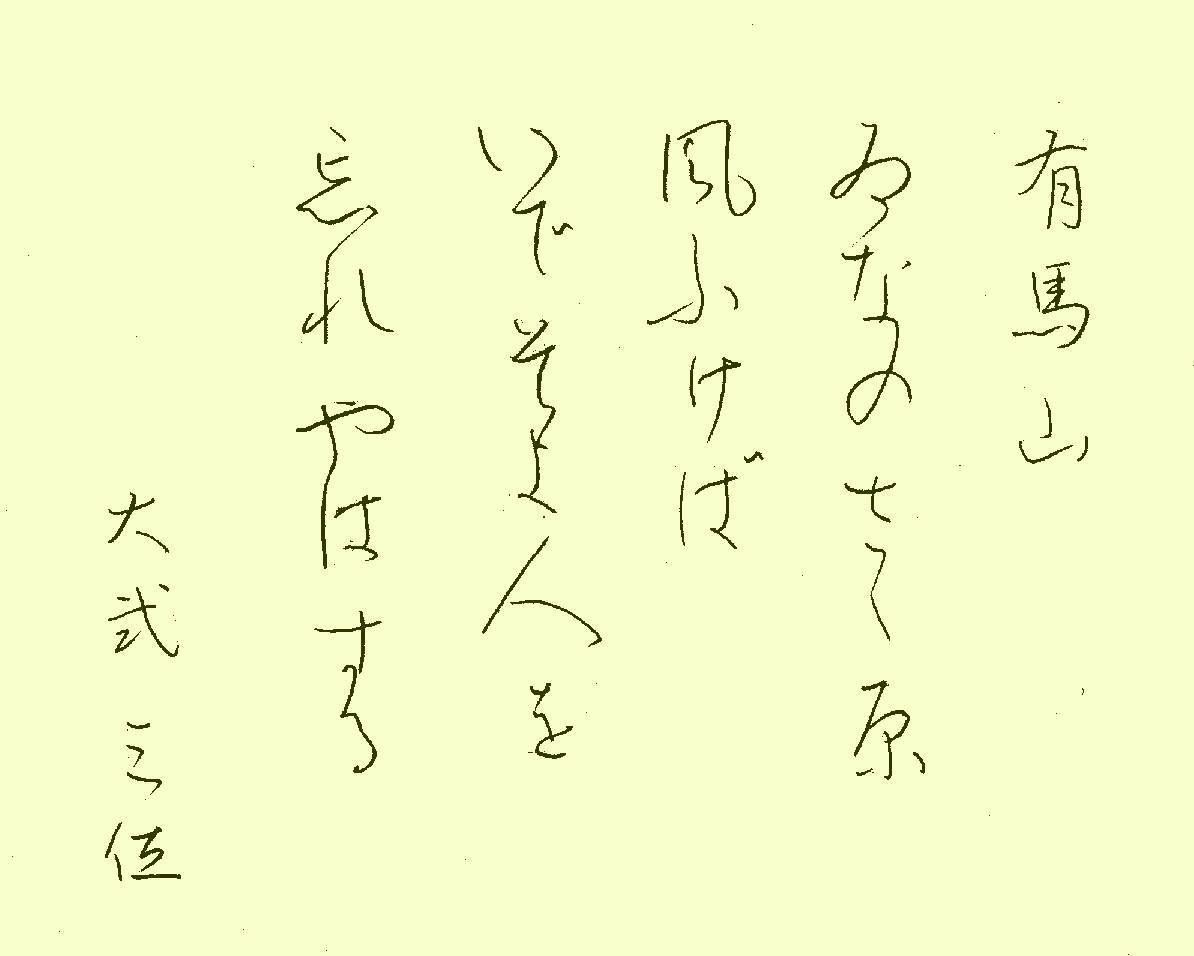 有馬山
ゐなのさゝ原
風ふけば
いでそよ人を
忘れやはする
大弐三位